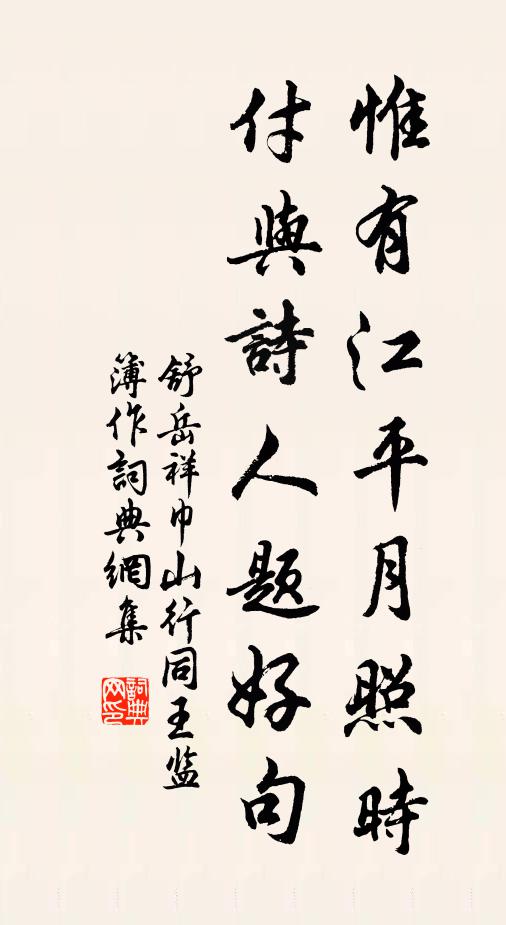 惟有江平月照時
付與詩人題好句
舒岳祥巾山行同王监
簿作詞典網集
詞典
网印